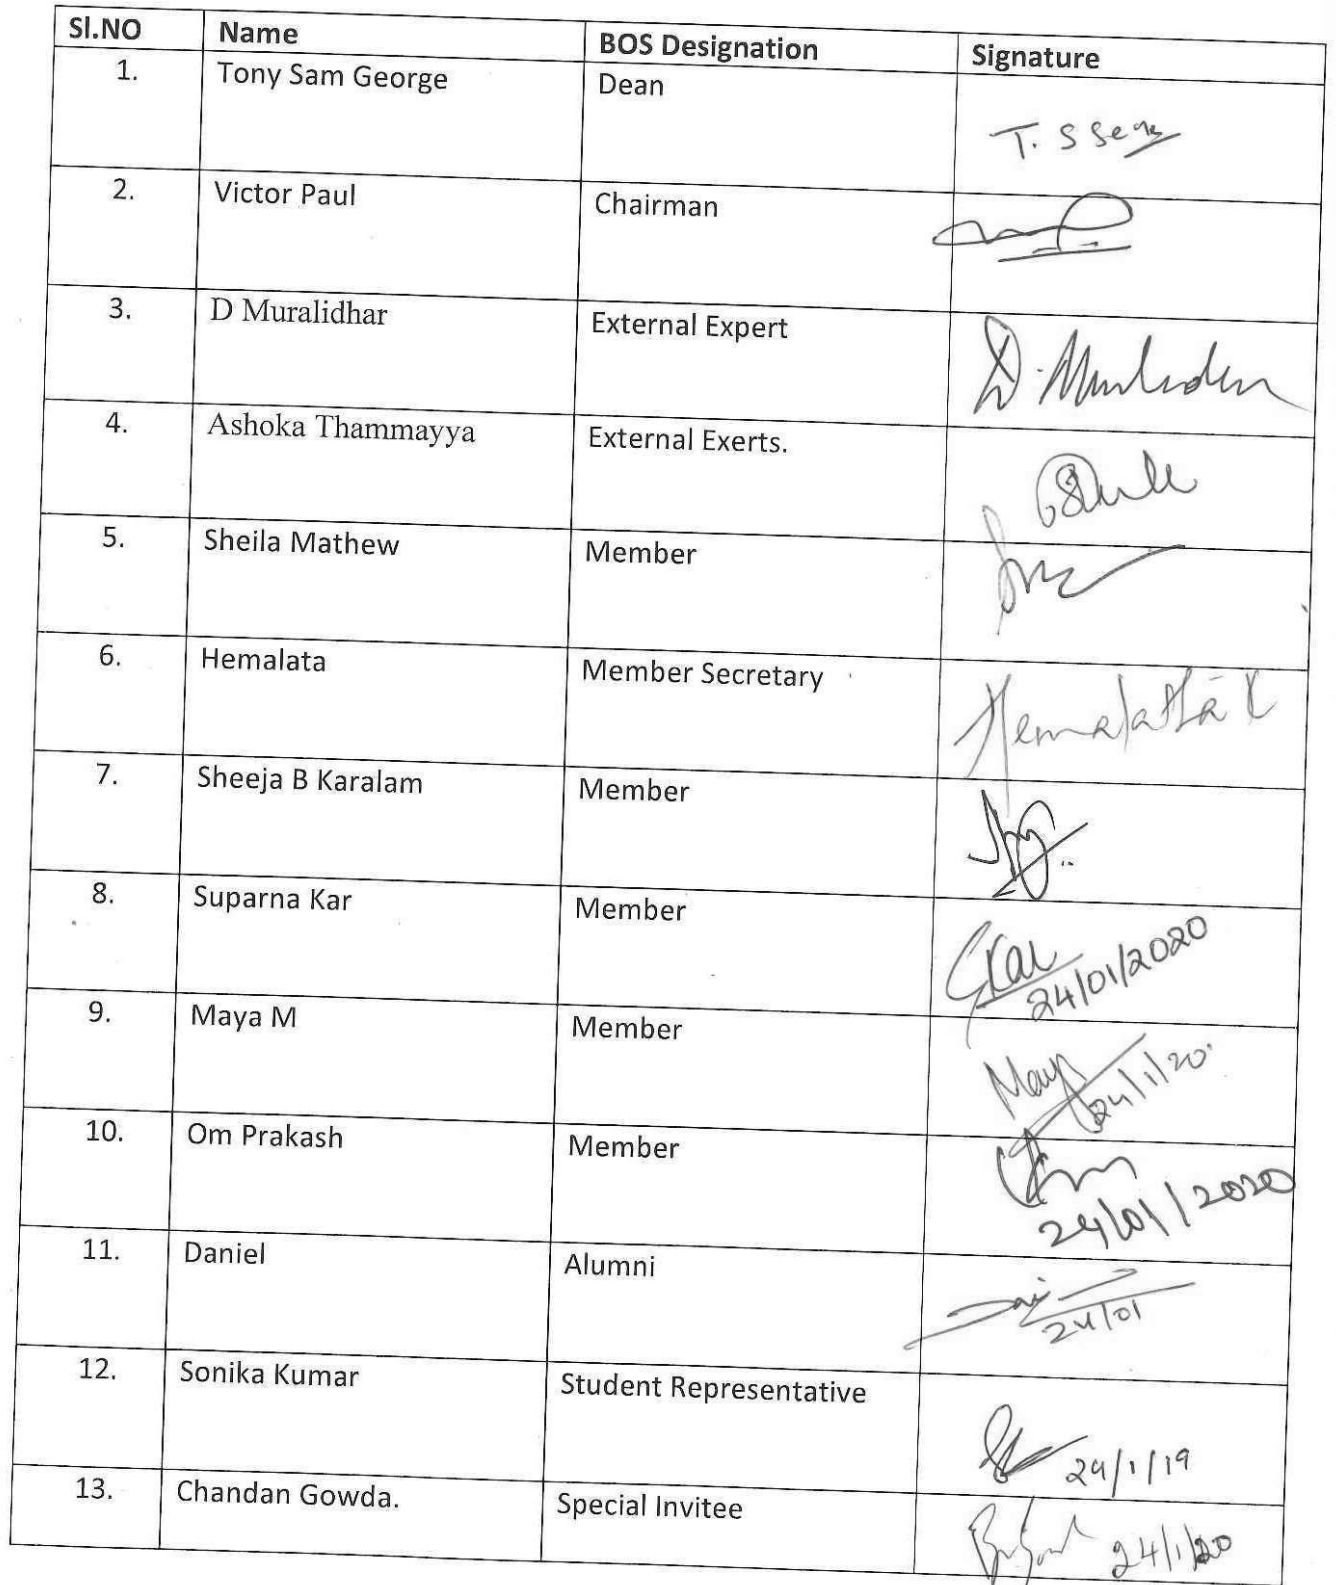 Sl.NO Name BOS Designation Signature
1. Tony Sam George Dean
T. S
2. Victor Paul Chairman
3. D Muralidhar External Expert
D. Muralidhar
4. Ashoka Thammayya External Exerts.
5. Sheila Mathew Member
6. Hemalata Member Secretary
Hemalatha K
7. Sheeja B Karalam Member
8. Suparna Kar Member
SKar
24/01/2020
9. Maya M Member
Maya
24/1/20.
10. Om Prakash Member
24/01/2020
11. Daniel Alumni
24/01
12. Sonika Kumar Student Representative
24/1/19
13. Chandan Gowda. Special Invitee
24/1/20